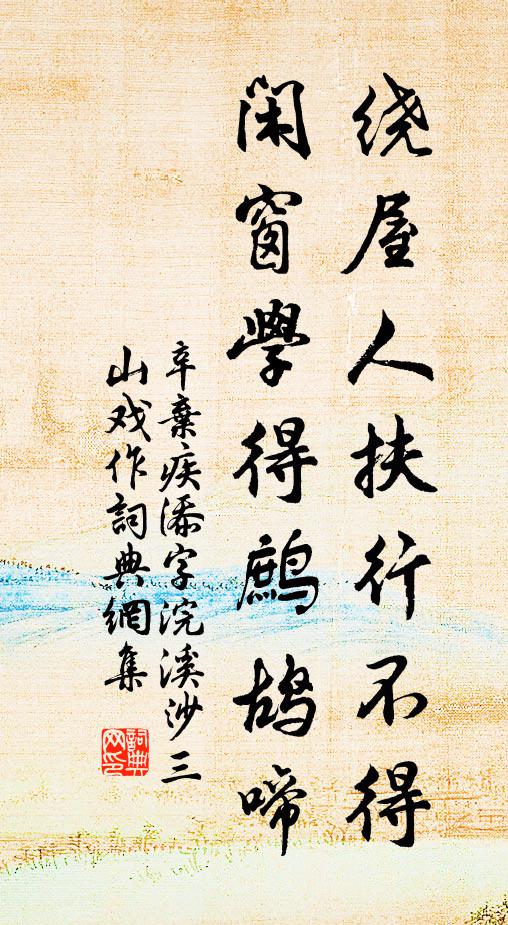 绕屋人扶行不得
闲窗學得鹧鸪啼
辛棄疾添字浣溪沙三
山戏作詞典網集
詞典网印